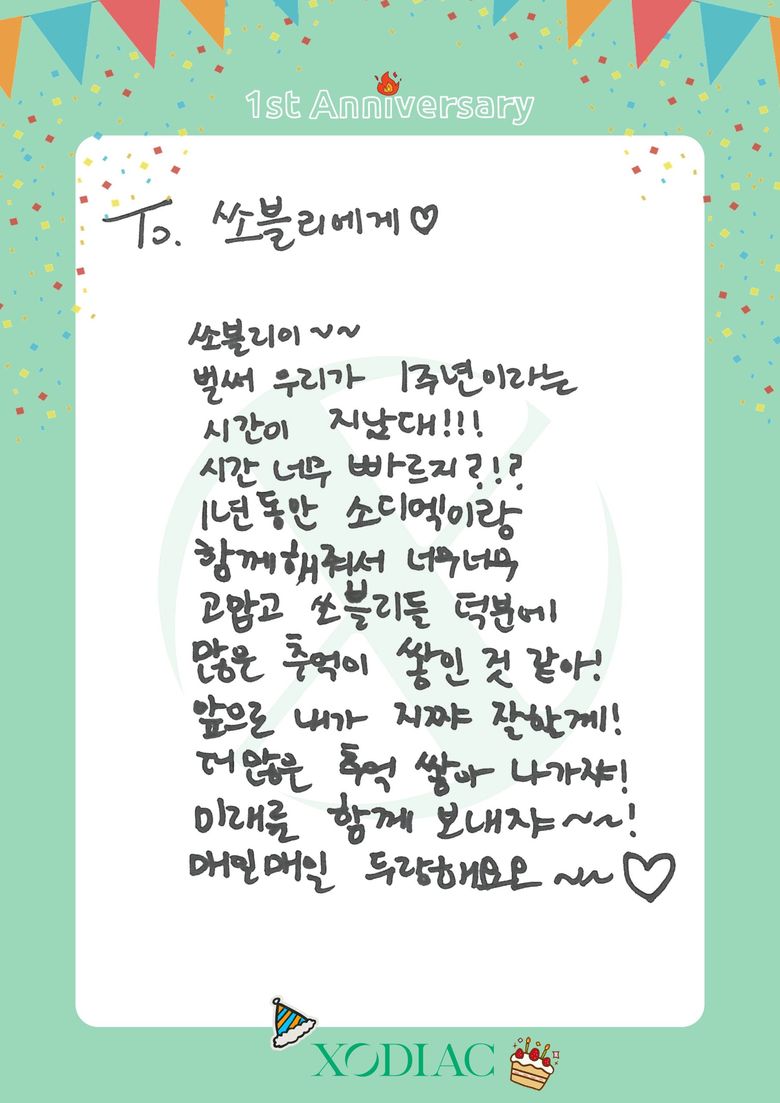 1st Anniversary
To. 쏘블리에게♡
쏘블리이~~
벌써 우리가 1주년이라는
시간이 지났대!!!
시간 너무 빠르지?!?
1년동안 소디엑이랑
함께해줘서 너무너무
고맙고 쏘블리들 덕분에
많은 추억이 쌓인 것 같아!
앞으로 내가 지쨔 잘할게!
더많은 추억 쌓아 나가쟈!
미래를 함께 보내쟈~~!
매일매일 두랑해요오~~♡
XODIAC